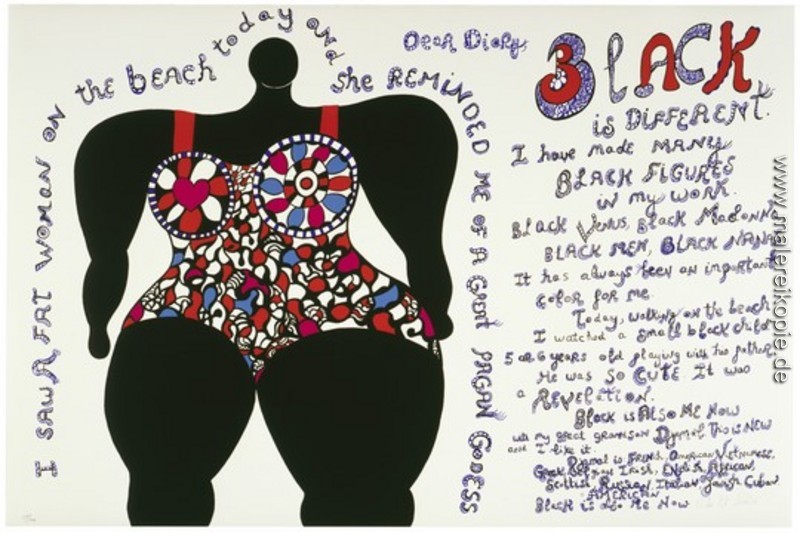 I SAW A FAT WOMAN ON the beach today and she REMINDED ME OF A Great PAGAN GODESS
Dear Diary,
BlACK
is DIFFERENT.
I have made MANY
BLACK FIGURES
in my work.
Black Venus, Black Madonna
BLACK MEN, BLACK NANA
It has always been an important
color for me.
Today, walking on the beach
I watched a small black child
5 or 6 years old playing with his father.
He was SO CUTE It was
a REVELATION.
Black is ALSO Me NOW
with my great grandson Djamal This is NEW
and I like it.
Djamal is FRENCH, American, Vietnamese,
Greek, Irish, English, African,
Scottish, Russian, Italian, Jewish, Cuban
AMERICAN
Black is also Me Now
www.malereikopie.de